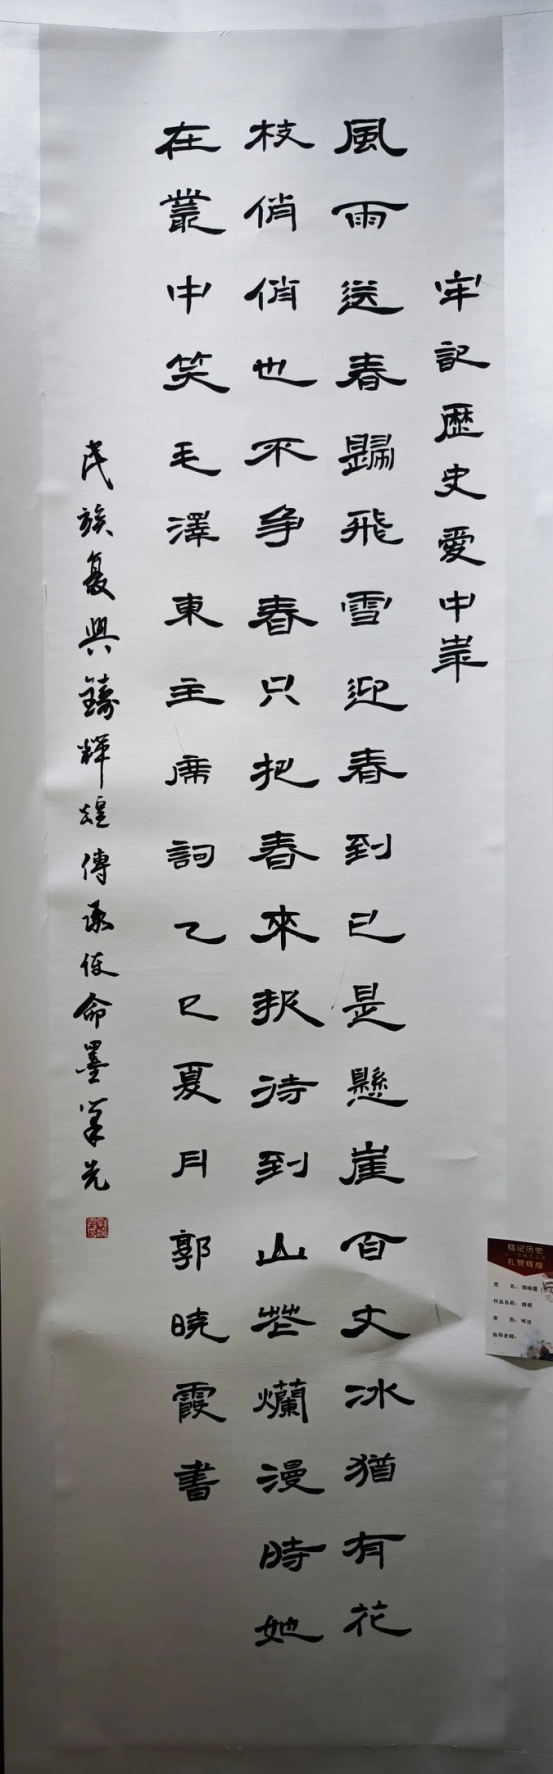 牢記歷史愛中華
風雨送春歸飛雪迎春到已是懸崖百丈冰猶有花
枝俏俏也不争春只把春來報待到山花爛漫時她
在叢中笑毛澤東主席詞乙巳夏月郭晓霞書
民族复興鑄輝煌傳承使命墨筆先
铭记历史
礼赞辉煌
姓 名：郭晓霞
作品名称：
类 别：书法
指导老师：